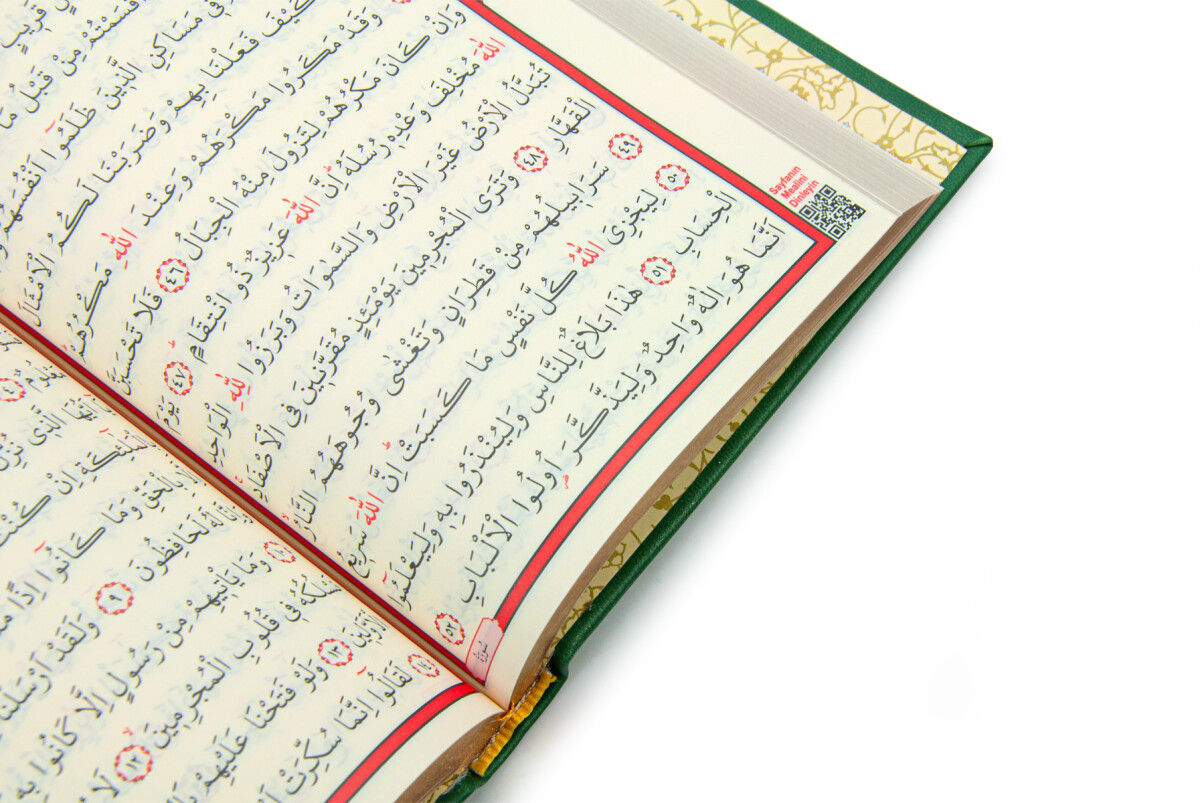 قَرِيبٍ
اَقْسَمْتُمْ مِنْ قَبْلُ مَا
فِى مَسَاكِنِ الَّذِينَ ظَلَمُوٓا اَنْفُسَهُمْ
كَيْفَ فَعَلْنَا بِهِمْ وَضَرَبْنَا لَكُمُ الْاَمْثَالَ
وَقَدْ مَكَرُوا مَكْرَهُمْ وَعِنْدَ اللّٰهِ مَكْرُهُمْ
وَاِنْ كَانَ مَكْرُهُمْ لِتَزُولَ مِنْهُ الْجِبَالُ ٤٦ فَلَا تَحْسَبَنَّ
اللّٰهَ مُخْلِفَ وَعْدِهٖ رُسُلَهُ اِنَّ اللّٰهَ عَزِيزٌ ذُو انْتِقَامٍ ٤٧ يَوْمَ
تُبَدَّلُ الْاَرْضُ غَيْرَ الْاَرْضِ وَالسَّمٰوَاتُ وَبَرَزُوا لِلّٰهِ الْوَاحِدِ
الْقَهَّارِ ٤٨ وَتَرَى الْمُجْرِمِينَ يَوْمَئِذٍ مُقَرَّنِينَ فِى الْاَصْفَادِ
٤٩ سَرَابِيلُهُمْ مِنْ قَطِرَانٍ وَتَغْشٰى وُجُوهَهُمُ النَّارُ
٥٠ لِيَجْزِىَ اللّٰهُ كُلَّ نَفْسٍ مَا كَسَبَتْ اِنَّ اللّٰهَ سَرِيعُ
الْحِسَابِ ٥١ هٰذَا بَلَاغٌ لِلنَّاسِ وَلِيُنْذَرُوا بِهٖ وَلِيَعْلَمُوٓا
اَنَّمَا هُوَ اِلٰهٌ وَاحِدٌ وَلِيَذَّكَّرَ اُولُوا الْاَلْبَابِ ٥٢
Sayfanın
Mealini
Dinleyin
سُورَةُ
الَّذِى نُزِّلَ
اِنْ كُنْتَ
بِالْحَقِّ وَمَا كَانُٓوا اِذًا
لَهُ لَحَافِظُونَ ٩ وَلَقَدْ اَرْسَلْنَا
وَمَا يَأْتِيهِمْ مِنْ رَسُولٍ اِلَّا كَانُوا بِهٖ
نَسْلُكُهُ فِى قُلُوبِ الْمُجْرِمِينَ ١٢ لَا
الْاَوَّلِينَ ١٣ وَلَوْ فَتَحْنَا عَلَيْهِمْ
١٤ لَقَالُٓوا اِنَّمَا سُكِّرَتْ